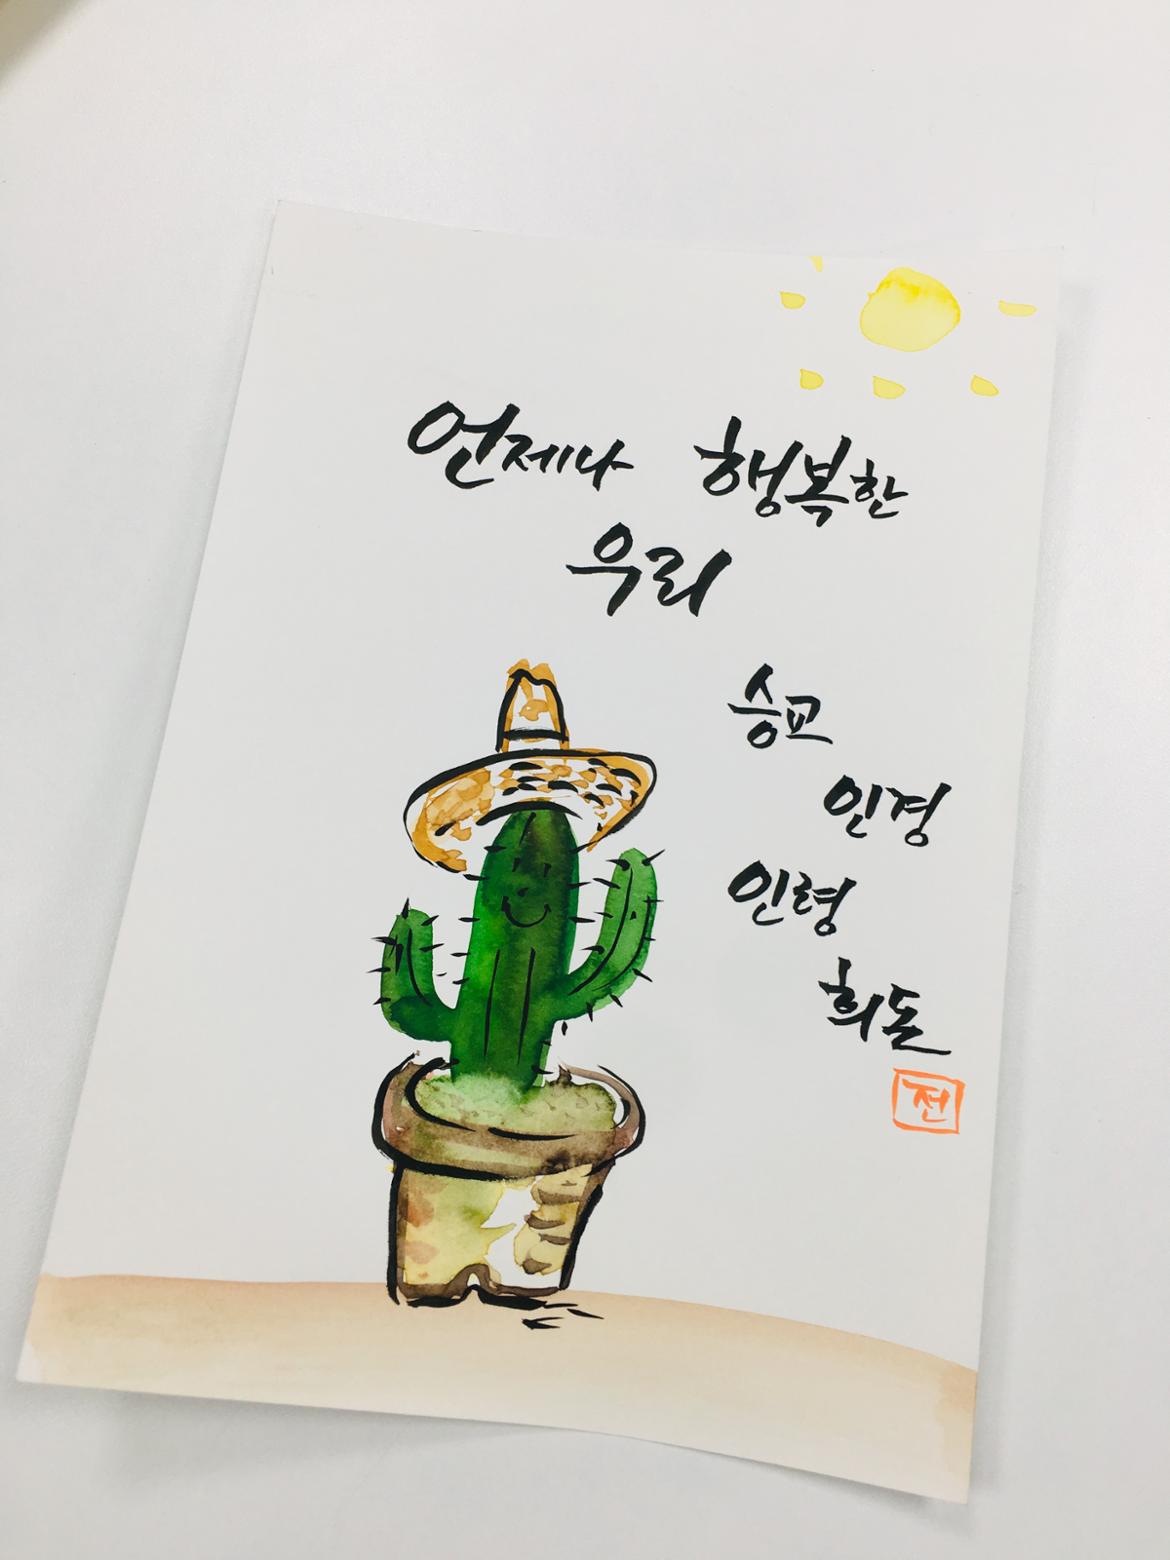 언제나 행복한
우리
승교
인경
인령
희돈
전